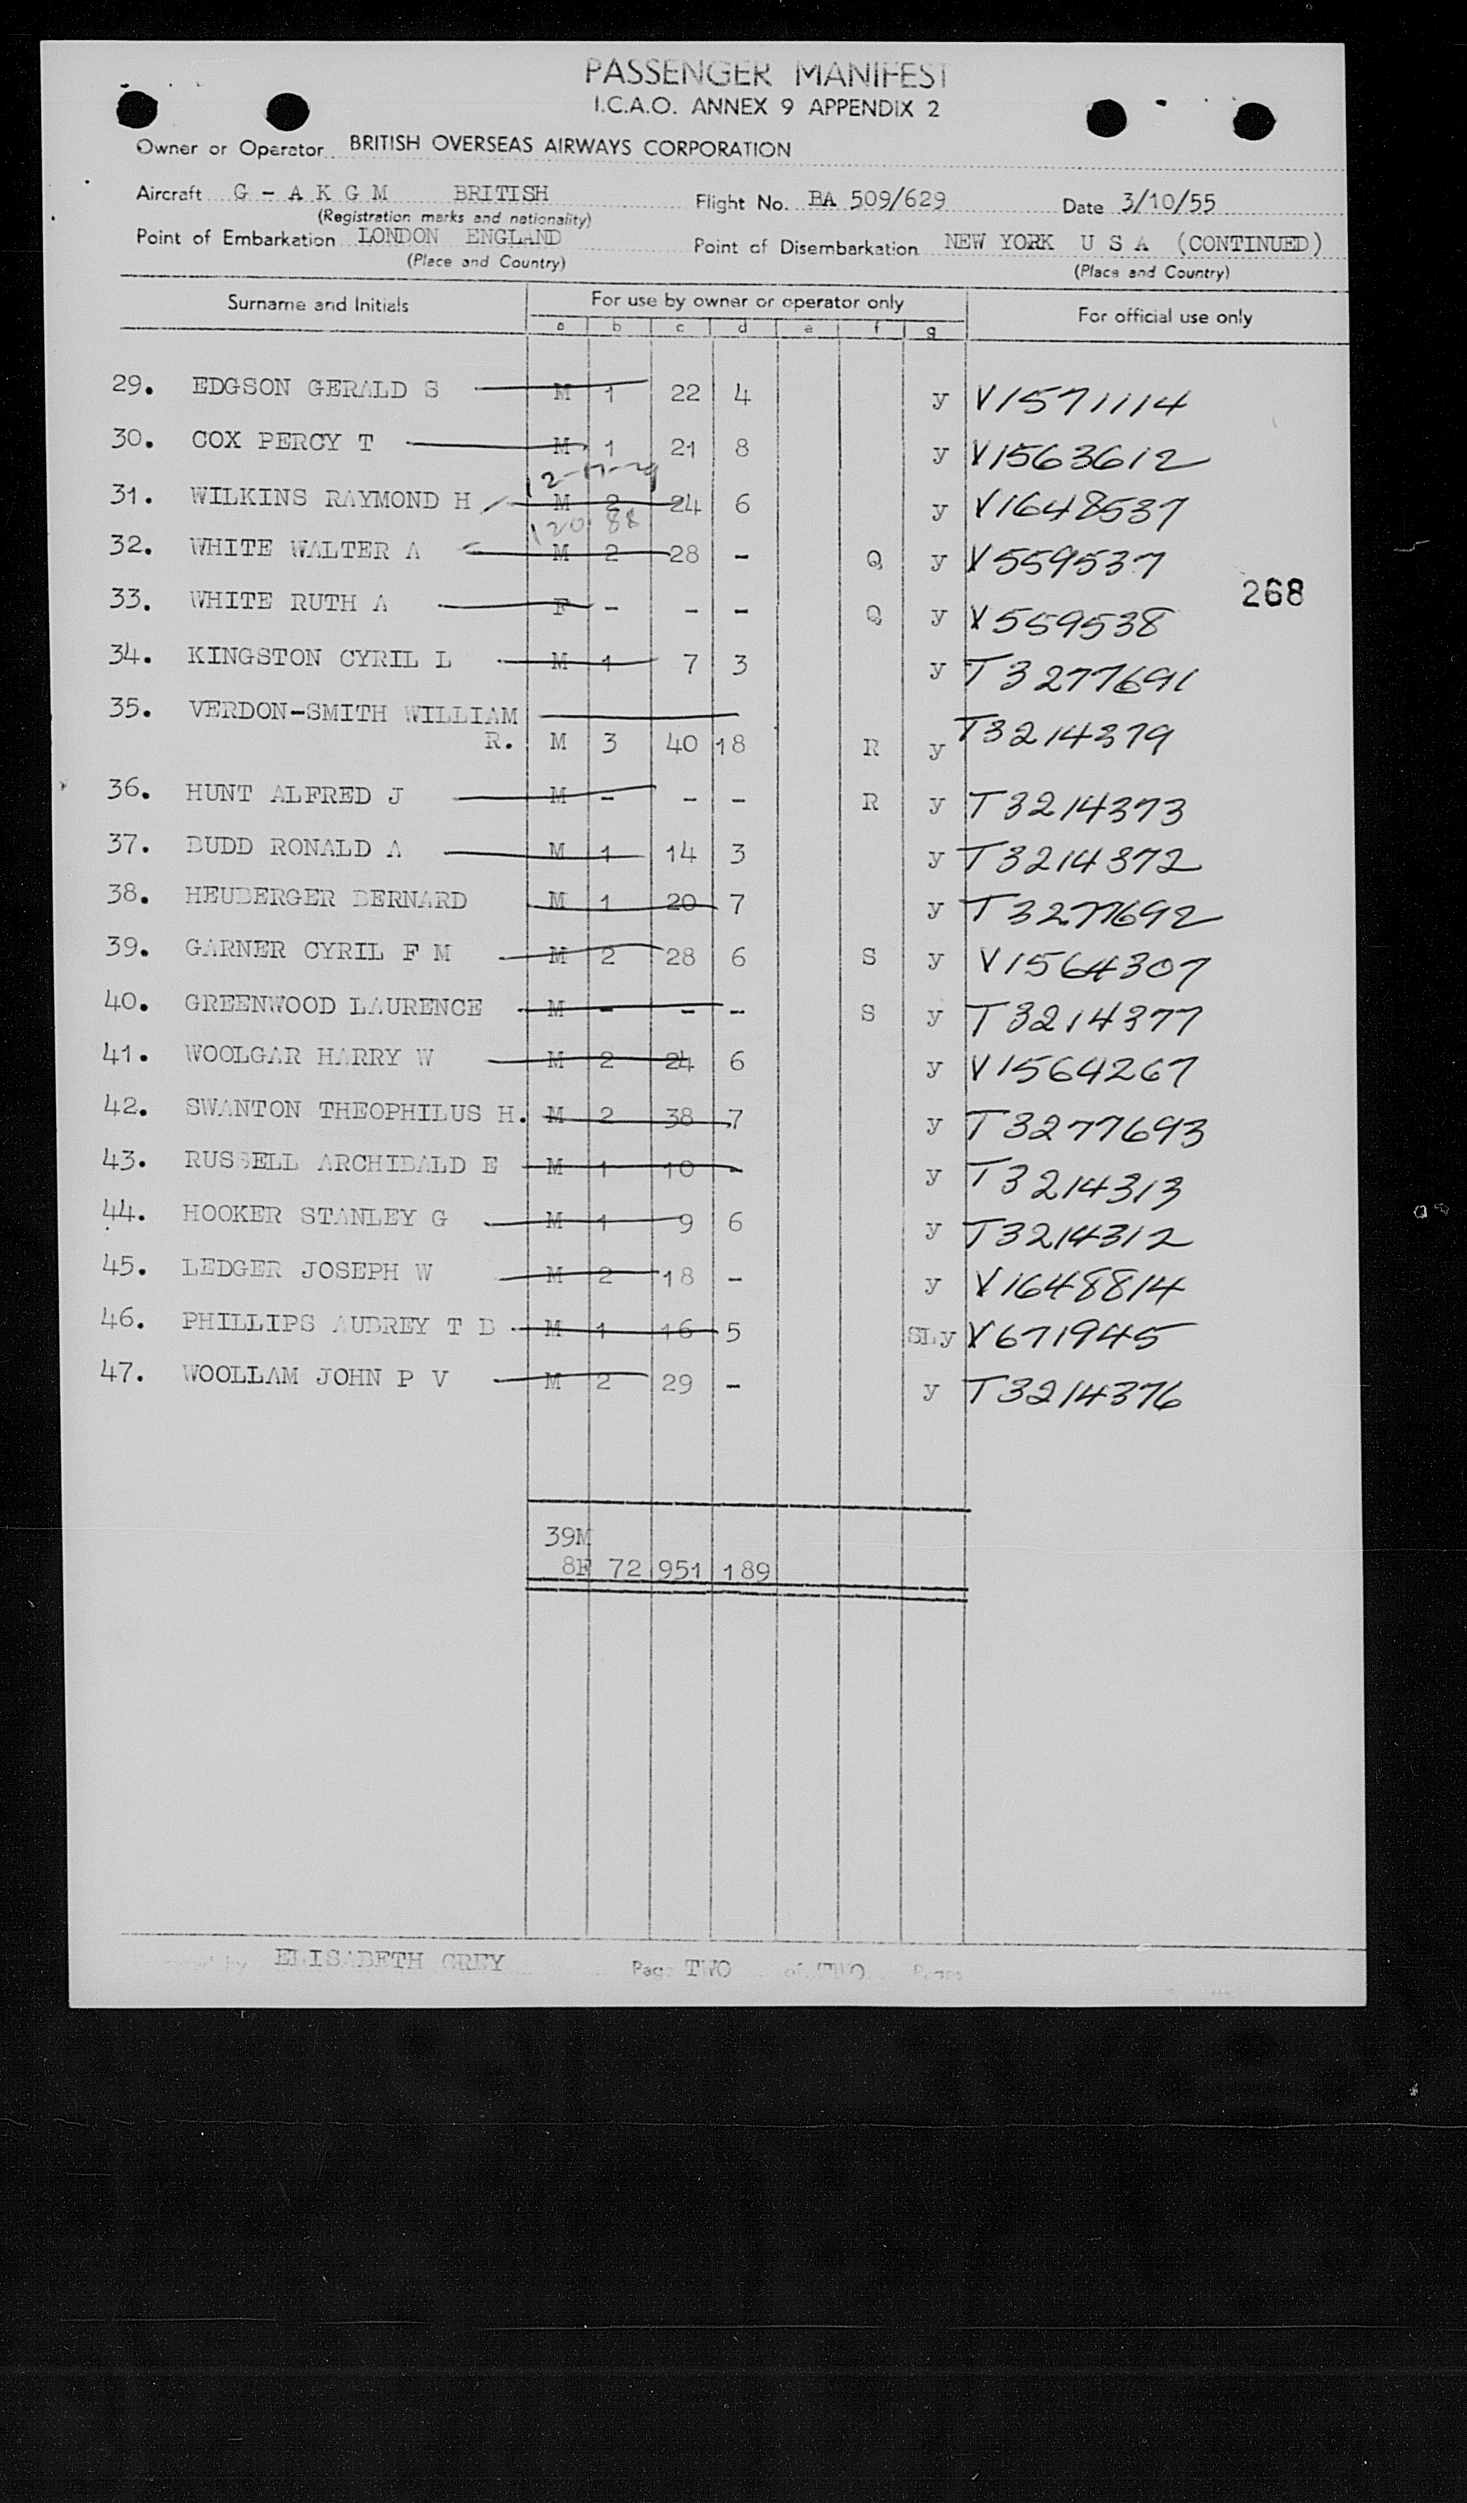 PASSENGER MANIFEST
I.C.A.O. ANNEX 9 APPENDIX 2
Owner or Operator BRITISH OVERSEAS AIRWAYS CORPORATION
Aircraft G - A K G M BRITISH Flight No. BA 509/629 Date 3/10/55
(Registration marks and nationality)
Point of Embarkation LONDON ENGLAND Point of Disembarkation NEW YORK U S A (CONTINUED)
(Place and Country) (Place and Country)
Surname and Initials For use by owner or operator only For official use only
a b c d e f g
29. EDGSON GERALD S M 1 22 4 y V1571114
30. COX PERCY T M 1 21 8 y V1563612
31. WILKINS RAYMOND H M 2 24 6 y V1648537
32. WHITE WALTER A M 2 28 - Q y V559537
268
33. WHITE RUTH A F - - - Q y V559538
34. KINGSTON CYRIL L M 1 7 3 y T3277691
35. VERDON-SMITH WILLIAM
R. M 3 40 18 R y T3214379
36. HUNT ALFRED J M - - - R y T3214373
37. BUDD RONALD A M 1 14 3 y T3214372
38. HEUBERGER BERNARD M 1 20 7 y T3277692
39. GARNER CYRIL F M M 2 28 6 S y V1564307
40. GREENWOOD LAURENCE M - - - S y T3214377
41. WOOLGAR HARRY W M 2 24 6 y V1564267
42. SWANTON THEOPHILUS H. M 2 38 7 y T3277693
43. RUSSELL ARCHIBALD E M 1 10 - y T3214313
44. HOOKER STANLEY G M 1 9 6 y T3214312
45. LEDGER JOSEPH W M 2 18 - y V1648814
46. PHILLIPS AUBREY T D M 1 16 5 SLy V671945
47. WOOLLAM JOHN P V M 2 29 - y T3214376
39M
8F 72 951 189
by ELISABETH GREY Page TWO of TWO Pages